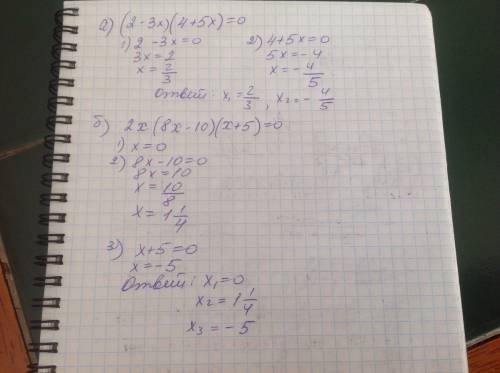 а) (2-3x)(4+5x)=0
1) 2-3x=0 2) 4+5x=0
3x=2 5x=-4
x=2/3 x=-4/5
Ответ: x₁=2/3, x₂=-4/5
б) 2x(8x-10)(x+5)=0
1) x=0
2) 8x-10=0
8x=10
x=10/8
x=1 1/4
3) x+5=0
x=-5
Ответ: x₁=0
x₂=1 1/4
x₃=-5